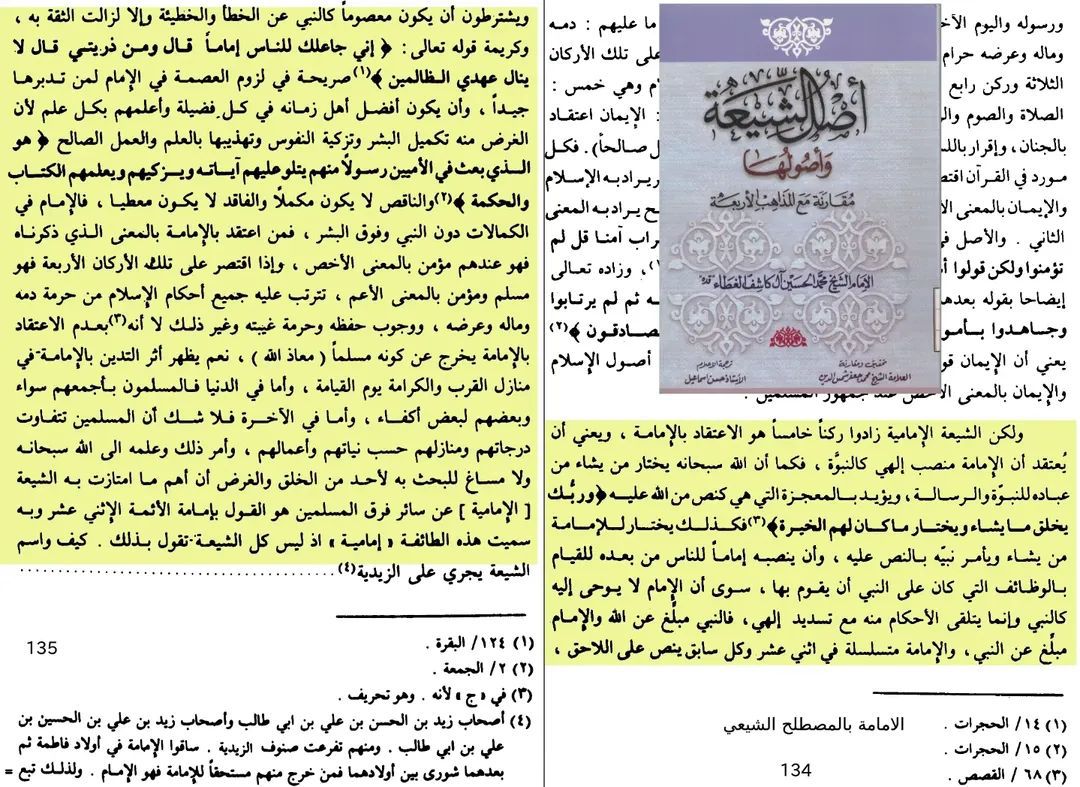 ورسوله واليوم الآخ
ما عليهم : دمه
وماله وعرضه حرام
على تلك الأركان
الثلاثة وركن رابع
م وهي خمس :
الصلاة والصوم وال
: الإيمان اعتقاد
بالجنان ، وإقرار بالل
ل صالحاً) . فكل
مورد في القرآن اقتص
ر يراد به الإسلام
والإيمان بالمعنى الأ
ح يراد به المعنى
الثاني . والأصل في
راب آمنا قل لم
تؤمنوا ولكن قولوا أ
، وزاده تعالى
إيضاحا بقوله بعده
ه ثم لم يرتابوا
وجاهدوا بأمو
صادقون ﴾(٢)
يعني أن الإيمان قو
أصول الإسلام
والإيمان بالمعنى الأخص عند جمهور المسلمين .
أصل الشيعة
وأصولها
مقارنة مع المذاهب الأربعة
الإمام الشيخ محمد الحسين آل كاشف الغطاء
تحقيق ومقارنة
العلامة الشيخ محمد جعفر شمس الدين
ترجمة الاعلام
الأستاذ حسن اسماعيل
ولكن الشيعة الإمامية زادوا ركناً خامساً هو الاعتقاد بالإمامة ، ويعني أن
يُعتقد أن الإمامة منصب إلهي كالنبوَّة ، فكما أن الله سبحانه يختار من يشاء من
عباده للنبوّة والرسالة ، ويؤيد بالمعجزة التي هي كنص من الله عليه ﴿وربُّك
يخلق ما يشاء ويختار ما كان لهم الخيرة﴾(٣) فكذلك يختار للإمامة
من يشاء ويأمر نبيّه بالنص عليه ، وأن ينصبه إماماً للناس من بعده للقيام
بالوظائف التي كان على النبي أن يقوم بها ، سوى أن الإمام لا يوحى إليه
كالنبي وإنما يتلقى الأحكام منه مع تسديد إلهي، فالنبي مبلِّغ عن الله والإمام
مبلِّغ عن النبي، والإمامة متسلسلة في اثني عشر وكل سابق ينص على اللاحق ،
(١) ١٤/ الحجرات .
الامامة بالمصطلح الشيعي
(٢) ١٥/ الحجرات .
(٣) ٦٨ / القصص .
134
ويشترطون أن يكون معصوماً كالنبي عن الخطأ والخطيئة وإلا لزالت الثقة به ،
وكريمة قوله تعالى : ﴿ إني جاعلك للناس إماماً قال ومن ذريتي قال لا
ينال عهدي الظالمين ﴾(١) صريحة في لزوم العصمة في الإمام لمن تدبرها
جيداً ، وأن يكون أفضل أهل زمانه في كل فضيلة وأعلمهم بكل علم لأن
الغرض منه تكميل البشر وتزكية النفوس وتهذيبها بالعلم والعمل الصالح ﴿ هو
الذي بعث في الأميين رسولاً منهم يتلو عليهم آياته ويزكيهم ويعلمهم الكتاب
والحكمة ﴾(٢) والناقص لا يكون مكملاً والفاقد لا يكون معطيا ، فالإمام في
الكمالات دون النبي وفوق البشر ، فمن اعتقد بالإمامة بالمعنى الذي ذكرناه
فهو عندهم مؤمن بالمعنى الأخص ، وإذا اقتصر على تلك الأركان الأربعة فهو
مسلم ومؤمن بالمعنى الأعم ، تترتب عليه جميع أحكام الإسلام من حرمة دمه
وماله وعرضه ، ووجوب حفظه وحرمة غيبته وغير ذلك لا أنه(٣) بعدم الاعتقاد
بالإمامة يخرج عن كونه مسلماً ( معاذ الله ) ، نعم يظهر أثر التدين بالإمامة في
منازل القرب والكرامة يوم القيامة ، وأما في الدنيا فالمسلمون بأجمعهم سواء
وبعضهم لبعض أكفاء ، وأما في الآخرة فلا شك أن المسلمين تتفاوت
درجاتهم ومنازلهم حسب نياتهم وأعمالهم ، وأمر ذلك وعلمه الى الله سبحانه
ولا مساغ للبحث به لأحد من الخلق والغرض أن أهم ما امتازت به الشيعة
[ الإمامية ] عن سائر فرق المسلمين هو القول بإمامة الأئمة الإثني عشر وبه
سميت هذه الطائفة « إمامية » اذ ليس كل الشيعة تقول بذلك . كيف واسم
الشيعة يجري على الزيدية(٤) ......................................
(١) ١٢٤/ البقرة .
135
(٢) ٢/ الجمعة .
(٣) في « ج » لأنه . وهو تحريف .
(٤) أصحاب زيد بن الحسن بن علي بن ابي طالب وأصحاب زيد بن علي بن الحسين بن
علي بن ابي طالب . ومنهم تفرعت صنوف الزيدية . ساقوا الإمامة في أولاد فاطمة ثم
بعدهما شورى بين أولادهما فمن خرج منهم مستحقاً للإمامة فهو الإمام . ولذلك تبع =